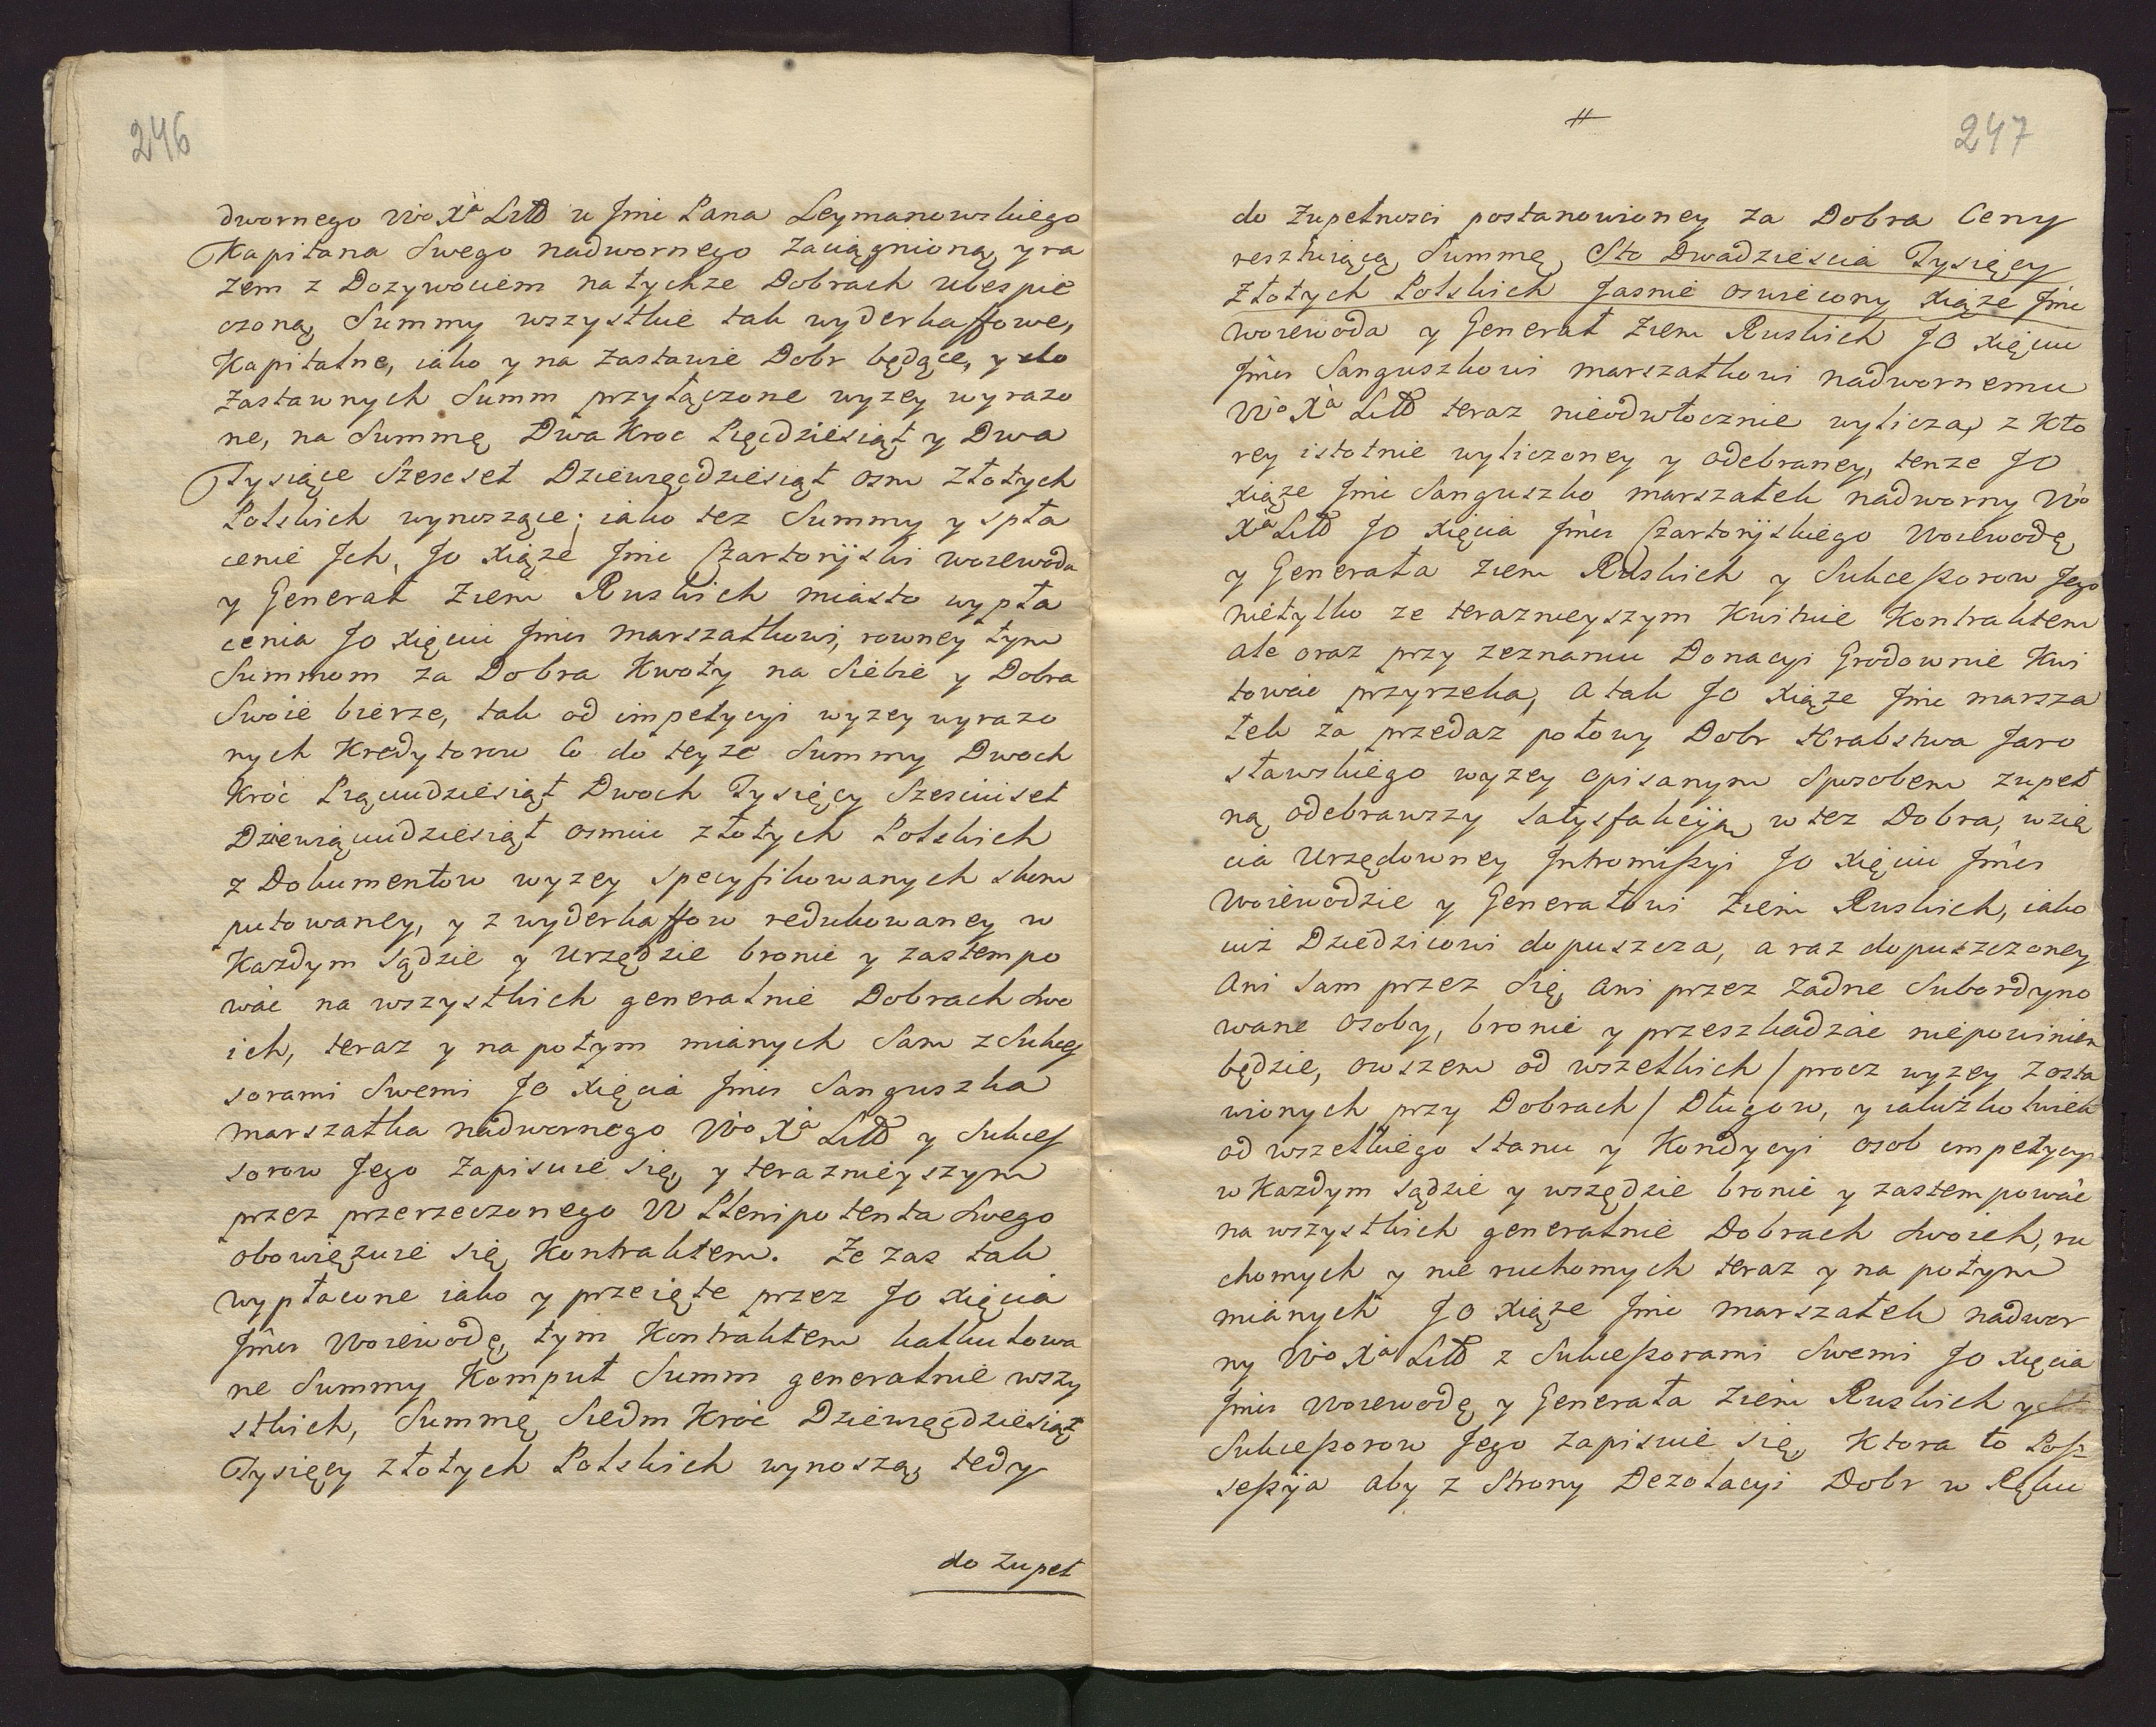 246
dwornego Wo Xa Litt u Jmć Pana Leymanowskiego
Kapitana Swego nadwornego zaciągnioną, y ra
zem z Dozywociem na tychze Dobrach ubespie
czoną, Summy wszystkie tak wyderkaffowe,
Kapitalne, iako y na Zastawie Dobr będące, y do
zastawnych Summ przyłączone wyzey wyrazo
ne, na Summę Dwa Kroc Pięcdziesiąt y Dwa
Tysiące Szescset Dziewięcdziesiąt osm Złotych
Polskich wynoszące; iako tez Summy y spła
cenie Jch, Jo Xiąze Jmć Czartoryiski Woiewoda
y Generał Ziem Ruskich miasto wypła
cenia Jo Xięciu Jmci Marszałkowi, rowney tym
Summom za Dobra Kwoty na Siebie y Dobra
Swoie bierze, tak od impetycyi wyzey wyrazo
nych Kredytorow Co do teyze Summy Dwoch
Kroć Pięciudziesiąt Dwoch Tysięcy Szesciuset
Dziewięciudziesiąt osmiu złotych Polskich
z Dokumentow wyzey specyfikowanych skom
putowaney, y z wyderkaffow redukowaney w
Kazdym Sądzie y Urzędzie bronić y zastempo
wać na wszystkich generalnie Dobrach swo
ich, teraz y napotym mianych Sam z Sukces
sorami Swemi Jo Xięcia Jmci Sanguszka
Marszałka nadwornego Wo Xa Litt y Sukces
sorow Jego zapisuie się, y teraznieyszym
przez przerzeczonego W Plenipotenta swego
obowięzuie się Kontraktem. Ze zas tak
wypłacone iako y przeięte przez Jo Xięcia
Jmci Woiewodę, tym Kontraktem kalkulowa
ne Summy Komput Summ generalnie wszy
stkich, Summę Siedm Kroć Dziewięcdziesiąt
Tysięcy złotych Polskich wynoszą, tedy
do zupeł
#
247
do Zupełnosci postanowioney za Dobra Ceny
resztuiącą Summę, Sto Dwadziescia Tysięcy
Złotych Polskich Jasnie oswiecony Xiąze Jmć
Woiewoda y Generał Ziem Ruskich JO Xięciu
Jmci Sanguszkowi marszałkowi nadwornemu
Wo Xa Litt teraz nieodwłocznie wylicza, z Kto
rey istotnie wyliczoney y odebraney, tenze JO
Xiąze Jmć Sanguszko marszałek nadworny Wo
Xa Litt JO Xięcia Jmci Czartoryiskiego Woiewodę,
y Generała Ziem Ruskich y Sukcessorow Jego
nietylko ze teraznieyszym Kwituie Kontraktem
ale oraz przy zeznaniu Donacyi Grodownie Kwi
tować przyrzeka, a tak JO Xiąze Jmć marsza
łek za przedaz połowy Dobr Hrabstwa Jaro
sławskiego wyzey opisanym sposobem zupeł
ną odebrawszy satysfakcyią, w tez Dobra, wzię
cia Urzędowney Intromissyi JO Xięciu Jmci
Woiewodzie y Generałowi Ziem Ruskich, iako
iuż Dziedzicowi dopuszcza, a raz dopuszczoney
ani sam przez Się, ani przez zadne Subordyno
wane osoby, bronić y przeszkadzać niepowinien
będzie, owszem od wszelkich / procz wyzey zosta
wionych przy Dobrach / Długow, y iakieżkolwiek
od wszelkiego stanu y Kondycyi osob impetycyi
w Kazdym sądzie y wszędzie bronić y zastempować
na wszystkich generalnie Dobrach swoich, ru
chomych y nie ruchomych teraz y na potym
mianych JO Xiąze Jmć marszałek nadwor
ny Wo Xa Litt z Sukcessorami Swemi JO Xięcia
Jmci Woiewodę y Generała Ziem Ruskich y
Sukcessorow Jego zapisuie się, Ktora to Pos
sessyia aby z Strony Dezolacyi Dobr w Ręku